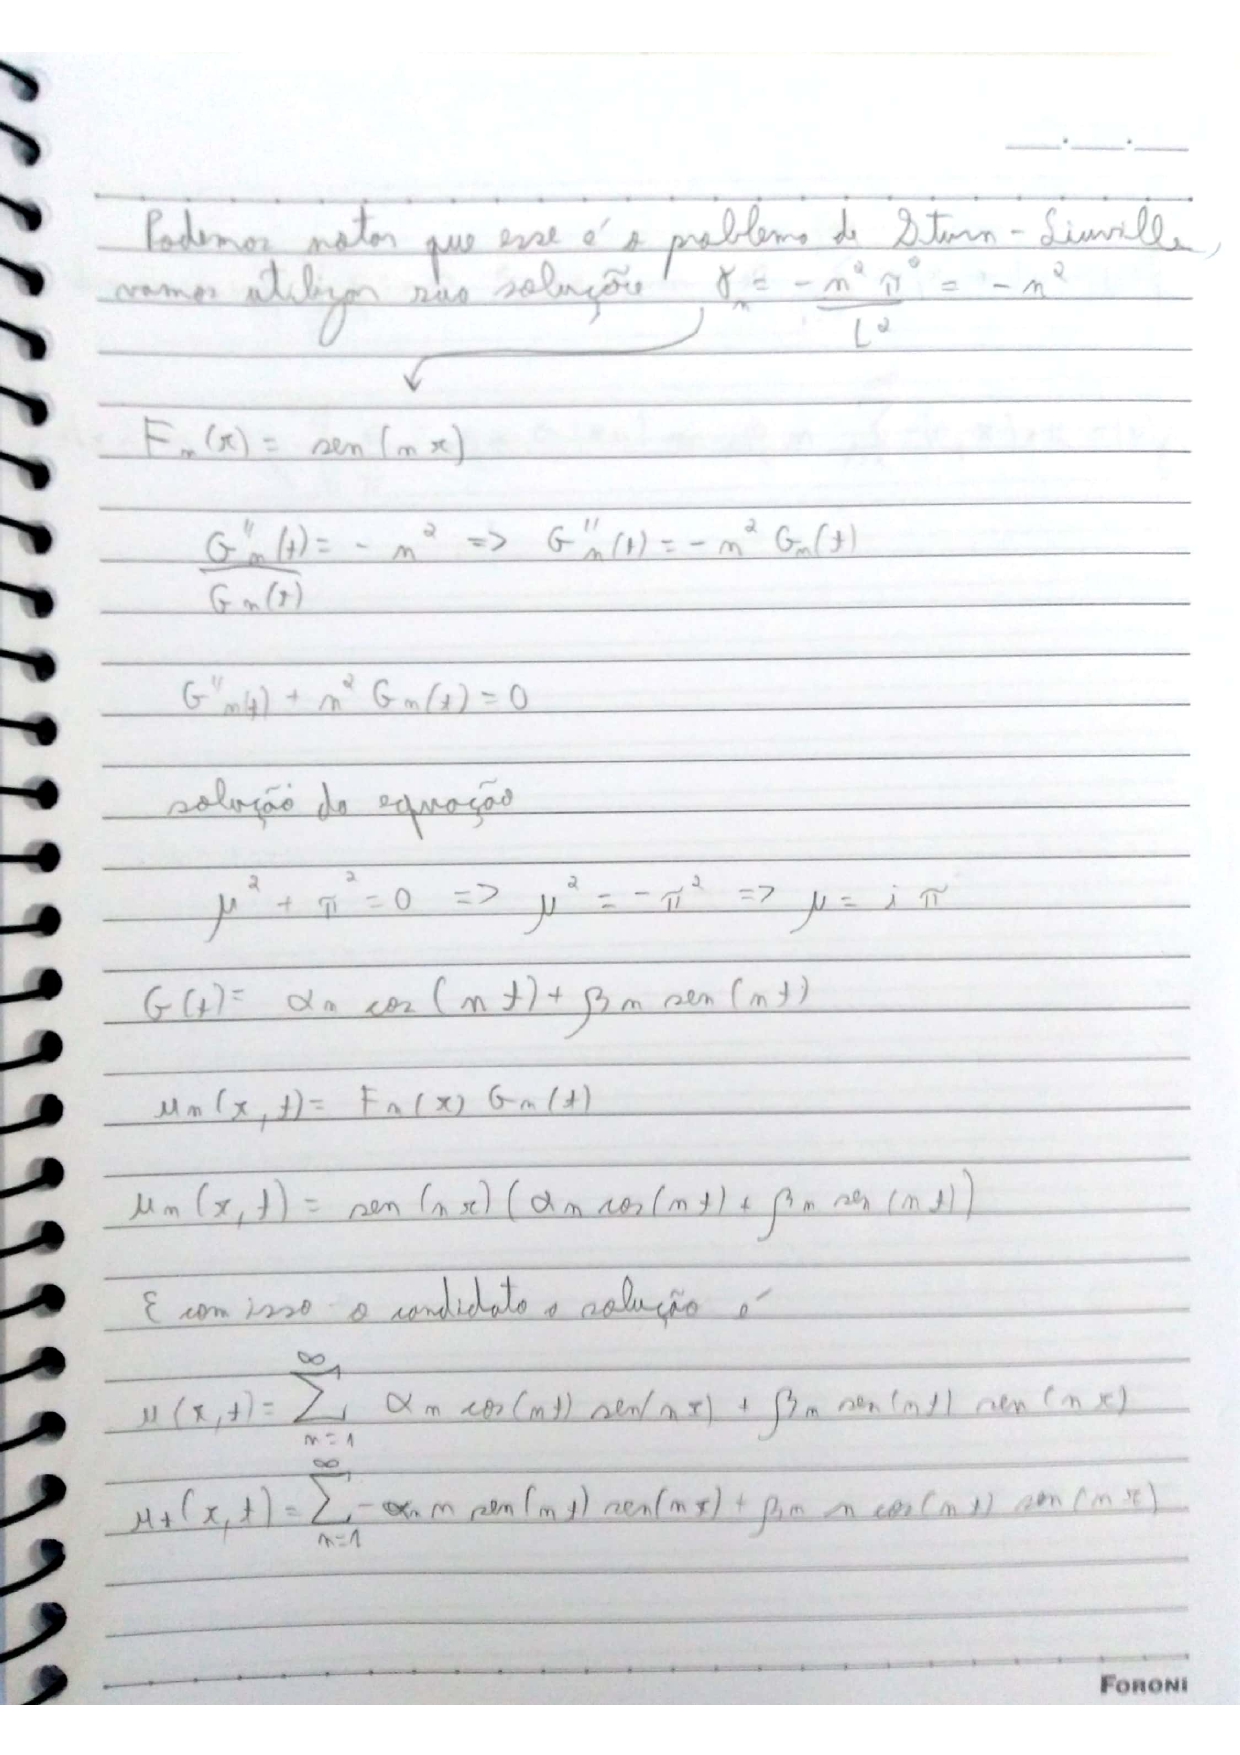 Podemos notar que esse é o problema de Sturn-Liuville,
vamos utilizar sua solução γn = - n² π² / L² = - n²
Fn(x) = sen(nx)
G''n(t) / Gn(t) = - n² => G''n(t) = - n² Gn(t)
G''n(t) + n² Gn(t) = 0
solução da equação
μ² + π² = 0 => μ² = - π² => μ = i π
G(t) = αn cos(nt) + βn sen(nt)
μn(x,t) = Fn(x) Gn(t)
μn(x,t) = sen(nx) (αn cos(nt) + βn sen(nt))
E com isso o candidato a solução é
μ(x,t) = ∑ n=1 ∞ αn cos(nt) sen(nx) + βn sen(nt) sen(nx)
μt(x,t) = ∑ n=1 ∞ - αn n sen(nt) sen(nx) + βn n cos(nt) sen(nx)
FORONI